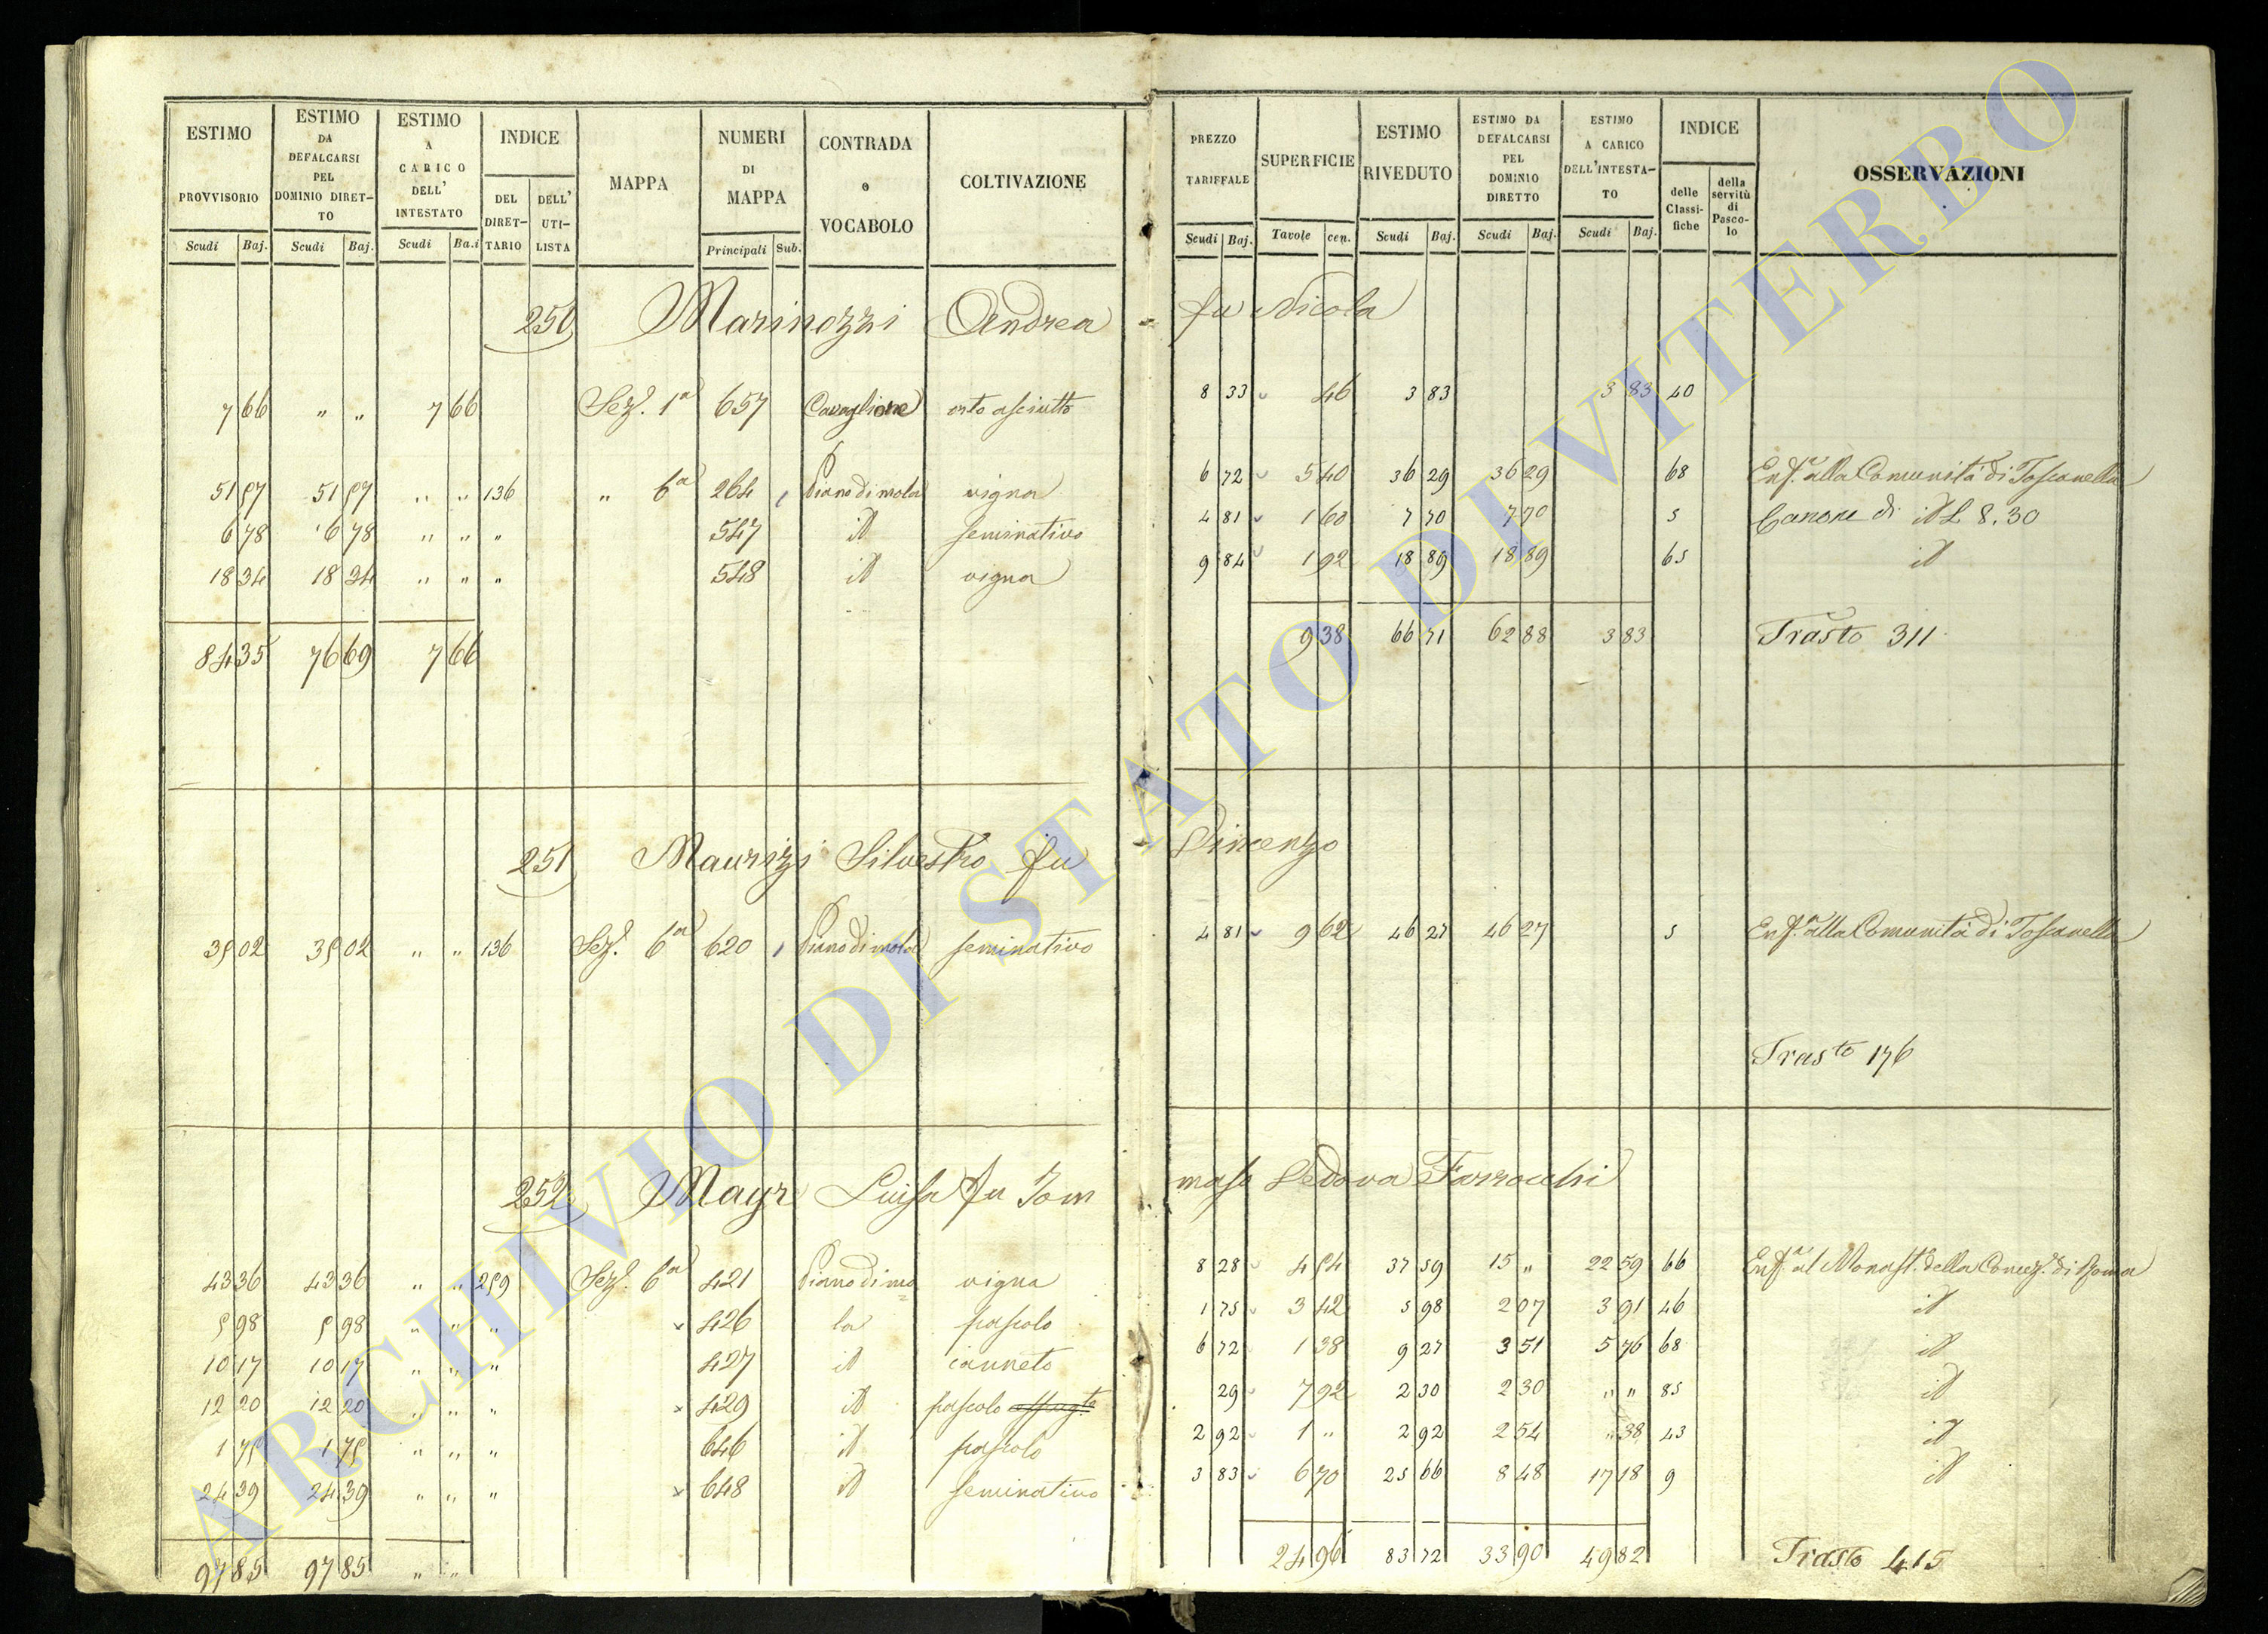 ESTIMO PROVVISORIO Scudi Baj.
ESTIMO DA DEFALCARSI PEL DOMINIO DIRET-TO Scudi Baj.
ESTIMO A CARICO DELL' INTESTATO Scudi Ba.i
INDICE DEL DIRET-TARIO DELL' UTI-LISTA
MAPPA
NUMERI DI MAPPA Principali Sub.
CONTRADA o VOCABOLO
COLTIVAZIONE
PREZZO TARIFFALE Scudi Baj.
SUPERFICIE Tavole cen.
ESTIMO RIVEDUTO Scudi Baj.
ESTIMO DA DEFALCARSI PEL DOMINIO DIRETTO Scudi Baj.
ESTIMO A CARICO DELL'INTESTA-TO Scudi Baj.
INDICE delle Classi-fiche della servitù di Pasco-lo
OSSERVAZIONI
250 Marinozzi Andrea fu Nicola
7 66 " " 7 66 Sez. 1a 657 Cavaglione orto asciutto 8 33 46 3 83 3 83 40
51 57 51 57 " " 136 " 6a 264 Piano di mola vigna 6 72 5 40 36 29 36 29 68 Enf.a alla Comunità di Toscanella
6 78 6 78 " " " 547 id seminativo 4 81 1 60 7 70 7 70 5 Canone di id L 8.30
18 34 18 34 " " " 548 id vigna 9 84 1 92 18 89 18 89 65 id
84 35 76 69 7 66 9 38 66 71 62 88 3 83 Trasto 311
251 Maurizi Silvestro fu Vincenzo
35 02 35 02 " " 136 Sez. 6a 620 Piano di mola seminativo 4 81 9 62 46 27 46 27 5 Enf.a alla Comunità di Toscanella
Trasto 176
252 Mayr Luisa fu Tommaso Vedova Farrocchi
43 36 43 36 " " 259 Sez. 6a 421 Piano di mo= vigna 8 28 4 54 37 59 15 " 22 59 66 Enf.a al Monast. della Concez. di Roma
5 98 5 98 " " " × 426 la pascolo 1 75 3 42 5 98 2 07 3 91 46 id
10 17 10 17 " " " 427 id canneto 6 72 1 38 9 27 3 51 5 76 68 id
12 20 12 20 " " " × 429 id pascolo 29 7 92 2 30 2 30 " " 85 id
1 75 1 75 " " " 646 id pascolo 2 92 1 " 2 92 2 54 " 38 43 id
24 39 24 39 " " " × 648 id seminativo 3 83 6 70 25 66 8 48 17 18 9 id
97 85 97 85 " " 24 96 83 72 33 90 49 82 Trasto 415
ARCHIVIO DI STATO DI VITERBO